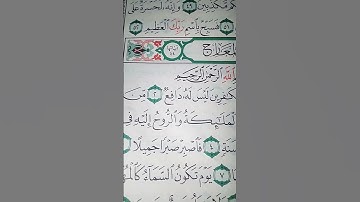 كُم مُّكَذِّبِينَ ٤٩ وَإِنَّهُۥ لَحَسْرَةٌ عَلَى
٥١ فَسَبِّحْ بِٱسْمِ رَبِّكَ ٱلْعَظِيمِ ٥٢
لمعارج
ٱللَّهِ ٱلرَّحْمَٰنِ ٱلرَّحِيمِ
كَٰفِرِينَ لَيْسَ لَهُۥ دَافِعٌ ٢ مِّنَ
لْمَلَٰٓئِكَةُ وَٱلرُّوحُ إِلَيْهِ فِى
سَنَةٍ ٤ فَٱصْبِرْ صَبْرًا جَمِيلًا
٧ يَوْمَ تَكُونُ ٱلسَّمَآءُ كَٱلْمُ